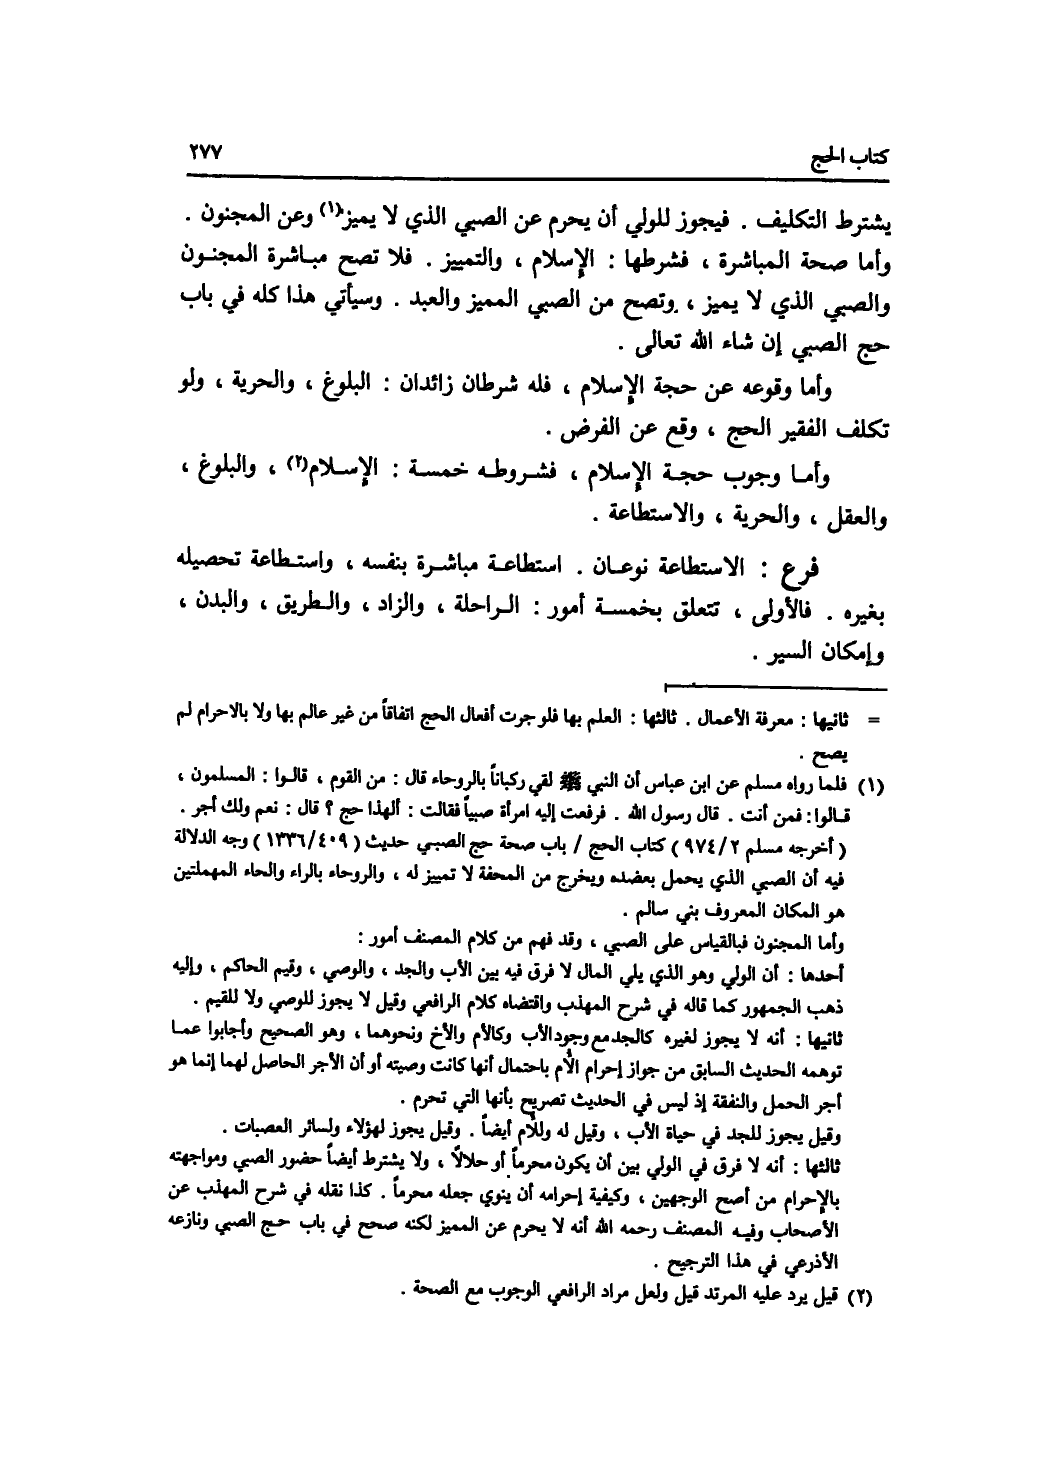 كتاب الحج
٢٧٧
يشترط التكليف . فيجوز للولي أن يحرم عن الصبي الذي لا يميز(١) وعن المجنون .
وأما صحة المباشرة ، فشرطها : الإسلام ، والتمييز . فلا تصح مباشرة المجنون
والصبي الذي لا يميز ، وتصح من الصبي المميز والعبد . وسيأتي هذا كله في باب
حج الصبي إن شاء الله تعالى .
وأما وقوعه عن حجة الإسلام ، فله شرطان زائدان : البلوغ ، والحرية ، ولو
تكلف الفقير الحج ، وقع عن الفرض .
وأما وجوب حجة الإسلام ، فشروطه خمسة : الإسلام(٢) ، والبلوغ ،
والعقل ، والحرية ، والاستطاعة .
فرع : الاستطاعة نوعان . استطاعة مباشرة بنفسه ، واستطاعة تحصيله
بغيره . فالأولى ، تتعلق بخمسة أمور : الراحلة ، والزاد ، والطريق ، والبدن ،
وإمكان السير .
= ثانيها : معرفة الأعمال . ثالثها : العلم بها فلو جرت أفعال الحج اتفاقاً من غير عالم بها ولا بالاحرام لم
يصح .
(١) فلما رواه مسلم عن ابن عباس أن النبي ﷺ لقي ركباناً بالروحاء قال : من القوم ، قالوا : المسلمون ،
قالوا : فمن أنت . قال رسول الله . فرفعت إليه امرأة صبياً فقالت : ألهذا حج ؟ قال : نعم ولك أجر .
( أخرجه مسلم ٩٧٤/٢ ) كتاب الحج / باب صحة حج الصبي حديث ( ١٣٣٦/٤٠٩ ) وجه الدلالة
فيه أن الصبي الذي يحمل بعضده ويخرج من المحفة لا تمييز له ، والروحاء بالراء والحاء المهملتين
هو المكان المعروف بني سالم .
وأما المجنون فبالقياس على الصبي ، وقد فهم من كلام المصنف أمور :
أحدها : أن الولي وهو الذي يلي المال لا فرق فيه بين الأب والجد ، والوصي ، وقيم الحاكم ، وإليه
ذهب الجمهور كما قاله في شرح المهذب واقتضاه كلام الرافعي وقيل لا يجوز للوصي ولا للقيم .
ثانيها : أنه لا يجوز لغيره كالجد مع وجود الأب وكالأم والأخ ونحوهما ، وهو الصحيح وأجابوا عما
توهمه الحديث السابق من جواز إحرام الأم باحتمال أنها كانت وصيته أو أن الأجر الحاصل لهما إنما هو
أجر الحمل والنفقة إذ ليس في الحديث تصريح بأنها التي تحرم .
وقيل يجوز للجد في حياة الأب ، وقيل له وللأم أيضاً . وقيل يجوز لهؤلاء ولسائر العصبات .
ثالثها : أنه لا فرق في الولي بين أن يكون محرماً أو حلالاً ، ولا يشترط أيضاً حضور الصبي ومواجهته
بالإحرام من أصح الوجهين ، وكيفية إحرامه أن ينوي جعله محرماً . كذا نقله في شرح المهذب عن
الأصحاب وفيه المصنف رحمه الله أنه لا يحرم عن المميز لكنه صحح في باب حج الصبي ونازعه
الأذرعي في هذا الترجيح .
(٢) قيل يرد عليه المرتد قيل ولعل مراد الرافعي الوجوب مع الصحة .